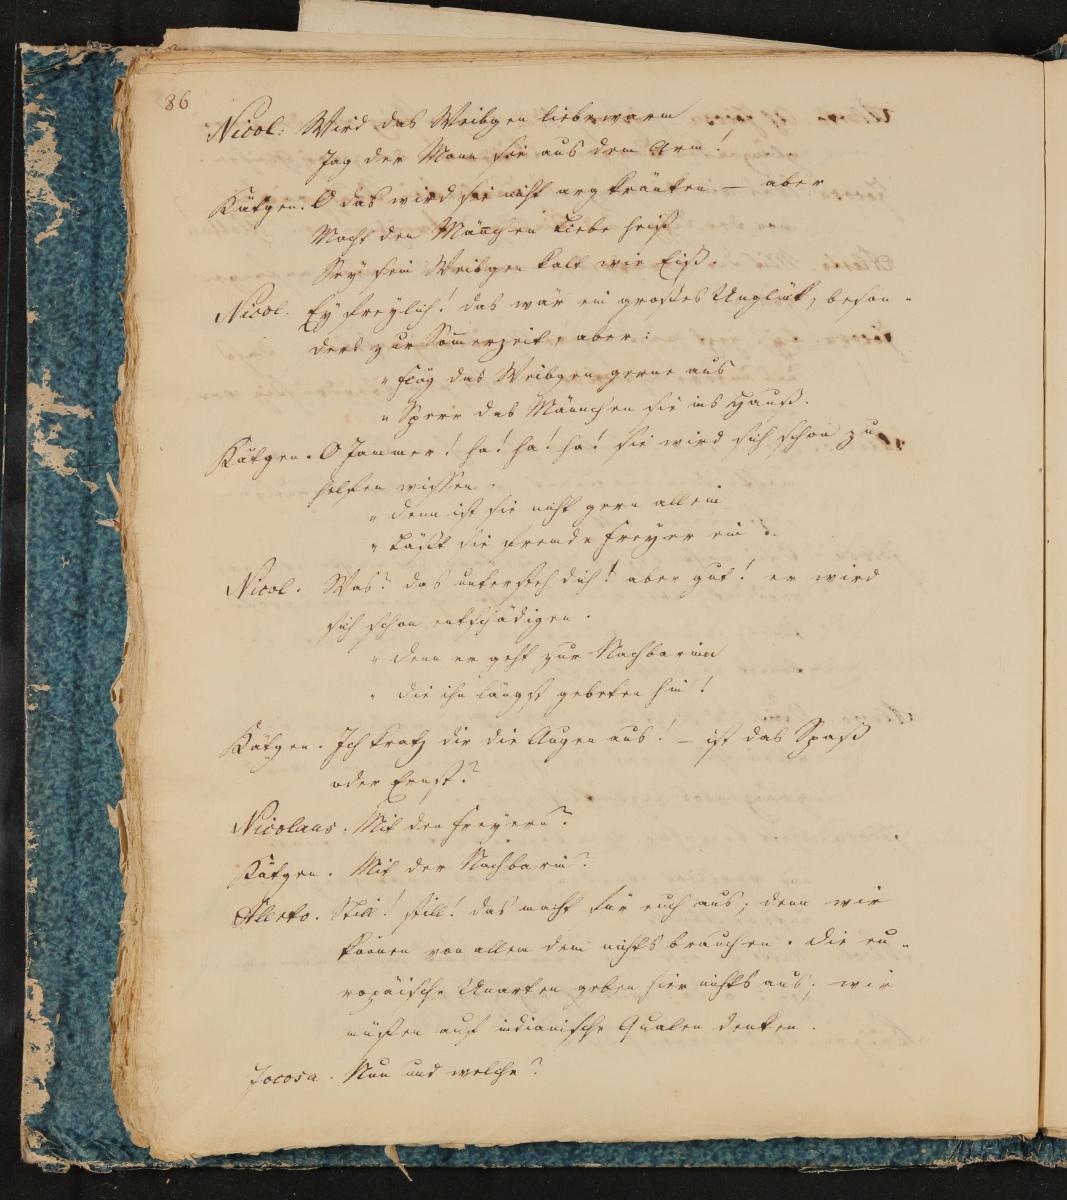 86
Nicol: Wird das Weibgen liebewarm
Jag der Mann sie aus dem Arm!
Kätgen. O das wird sie nicht arg kränken — aber
Macht den Mänchen Liebe heiß
Sey sein Weibgen kalt wie Eiß.
Nicol. Ey freylich! das wär ein großes Unglük, beson-
ders zur Somerzeit, aber:
„ Flög das Weibgen gerne aus
„ Sperr das Männchen sie ins Hauß.
Kätgen. O Jammer! ha! ha! ha! sie wird sich schon zu
helfen wissen.
„ denn ist sie nicht gern allein
„ Läßt sie fremde Freyer ein.
Nicol. Was? das untersteh dich! aber gut! er wird
sich schon entschädigen.
„ denn er geht zur Nachbarinn
„ die ihn längst gebeten hin!
Kätgen. Ich kratz dir die Augen aus! — ist das Spaß
oder Ernst?
Nicolaus. Mit den Freyern?
Kätgen. Mit der Nachbarin?
Allekto. Still! still! das macht für euch aus; denn wir
können von allem dem nichts brauchen. die eu-
ropäische Unarten geben hier nichts aus; wir
müßen auf indianische Qualen denken.
Jocosa. Nun und welche?